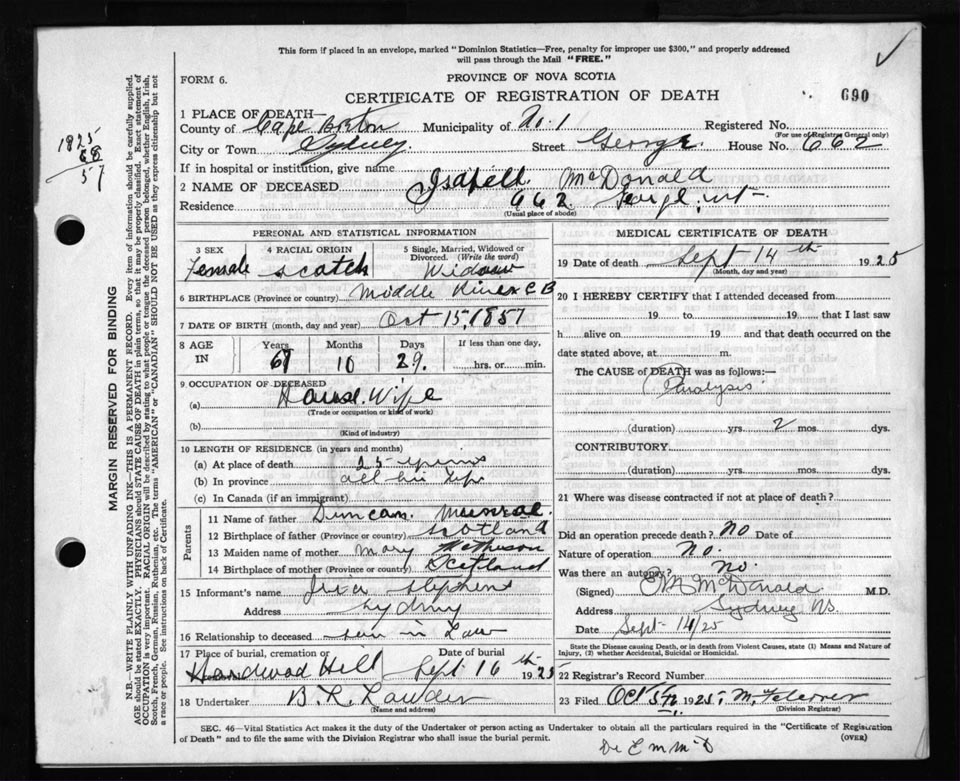 This form if placed in an envelope, marked "Dominion Statistics—Free, penalty for improper use $300," and properly addressed
will pass through the Mail "FREE."
FORM 6.
PROVINCE OF NOVA SCOTIA
CERTIFICATE OF REGISTRATION OF DEATH
690
1825
68
57
1 PLACE OF DEATH—
County of Cape Breton Municipality of No. 1 Registered No.
(For use of Registrar General only)
City or Town Sydney Street George House No. 662
If in hospital or institution, give name
2 NAME OF DECEASED Isabell McDonald
Residence 662 George
(Usual place of abode)
PERSONAL AND STATISTICAL INFORMATION
3 SEX 4 RACIAL ORIGIN 5 Single, Married, Widowed or Divorced. (Write the word)
Female Scotch Widow
6 BIRTHPLACE (Province or country) Middle River C B
7 DATE OF BIRTH (month, day and year) Oct 15, 1857
8 AGE IN Years 67 Months 10 Days 29. If less than one day,
hrs. or min.
9 OCCUPATION OF DECEASED
(a) House Wife
(Trade or occupation or kind of work)
(b)
(Kind of industry)
10 LENGTH OF RESIDENCE (in years and months)
(a) At place of death 25 years
(b) In province all his life
(c) In Canada (if an immigrant)
Parents
11 Name of father Duncan
12 Birthplace of father (Province or country) Scotland
13 Maiden name of mother Mary Matheson
14 Birthplace of mother (Province or country) Scotland
15 Informant's name Stephens
Address Sydney
16 Relationship to deceased son in Law
17 Place of burial, cremation or Date of burial
Hardwood Hill Sept 16th 1925
18 Undertaker B. L.
(Name and address)
MEDICAL CERTIFICATE OF DEATH
19 Date of death Sept 14th 1925
(Month, day and year)
20 I HEREBY CERTIFY that I attended deceased from
19 to 19 that I last saw
h alive on 19 and that death occurred on the
date stated above, at m.
The CAUSE of DEATH was as follows:—
Paralysis
(duration) yrs. 2 mos. dys.
CONTRIBUTORY.
(duration) yrs. mos. dys.
21 Where was disease contracted if not at place of death?
Did an operation precede death? No Date of
Nature of operation No.
Was there an autopsy? No.
(Signed) McDonald M.D.
Address Sydney NS.
Date Sept 14/25
State the Disease causing Death, or in death from Violent Causes, state (1) Means and Nature of
Injury, (2) whether Accidental, Suicidal or Homicidal.
22 Registrar's Record Number
23 Filed Oct 1925
(Division Registrar)
SEC. 46—Vital Statistics Act makes it the duty of the Undertaker or person acting as Undertaker to obtain all the particulars required in the "Certificate of Registration
of Death" and to file the same with the Division Registrar who shall issue the burial permit. (OVER)
MARGIN RESERVED FOR BINDING
N.B.—WRITE PLAINLY WITH UNFADING INK—THIS IS A PERMANENT RECORD. Every item of information should be carefully supplied.
AGE should be stated EXACTLY. PHYSICIANS should STATE CAUSE OF DEATH in plain terms, so that it may be properly classified. Exact statement of
OCCUPATION is very important. RACIAL ORIGIN will be described by stating to what people or tongue the deceased person belonged, whether English, Irish,
Scotch, French, German, Russian, Ruthenian, etc. The terms "AMERICAN" or "CANADIAN" SHOULD NOT BE USED as they express citizenship but not
a race or people. See instructions on back of Certificate.